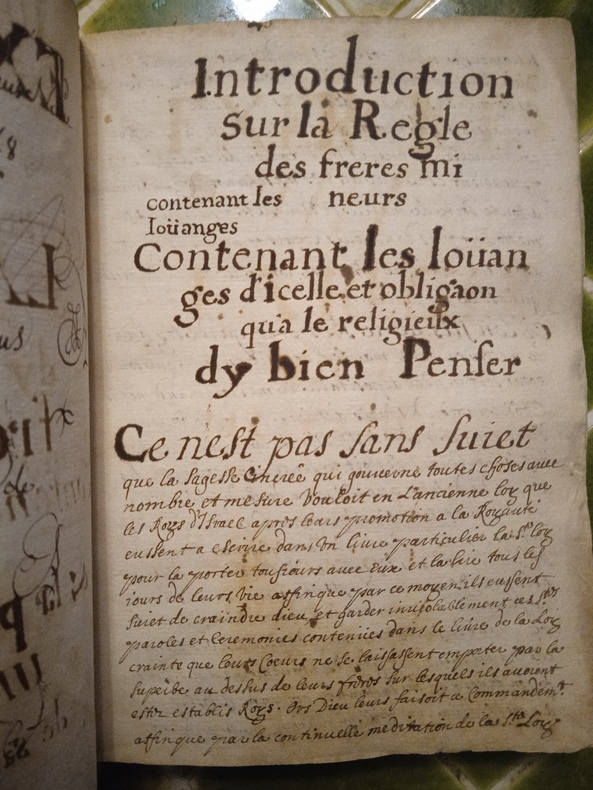 Introduction
sur la Regle
des freres mi
contenant les neurs
loüanges
Contenant les loüan
ges d'icelle et obligaon
qua le religieux
dy bien Penser
Ce nest pas sans suiet
que la sagesse increée qui gouverne toutes choses avec
nombre et mesure vouloit en L'ancienne loy que
les Roys d'Israel apres leurs promotion a la Royauté
eussent a escrire dans un livre particulier la Ste loy
pour la porter tousiours avec eux et la lire tous les
iours de leurs vie affinque par ce moyen ils eussent
suiet de craindre dieu, et garder inviolablement ces stes
paroles et Ceremonies contenües dans le livre de la Loy
crainte que leurs Coeurs ne se laissassent emporter par la
superbe au dessus de leurs freres sur lesquels ils avoient
estez establis Roys. Ors Dieu leurs faisoit ce Commandemt.
affinque par la continuelle meditation de la Ste Loy